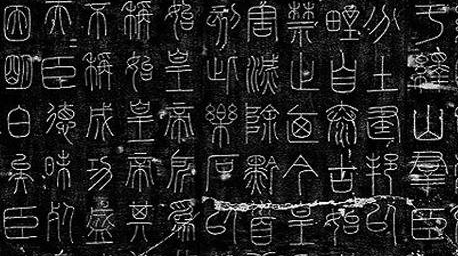 于繹山羣臣
分土建邦以
野自泰古始
禁止迺今皇
害滅除黔首
刻此樂石以
始皇帝所為
稱始皇帝其
不稱成功盛
夫臣德昧死
因明白矣臣